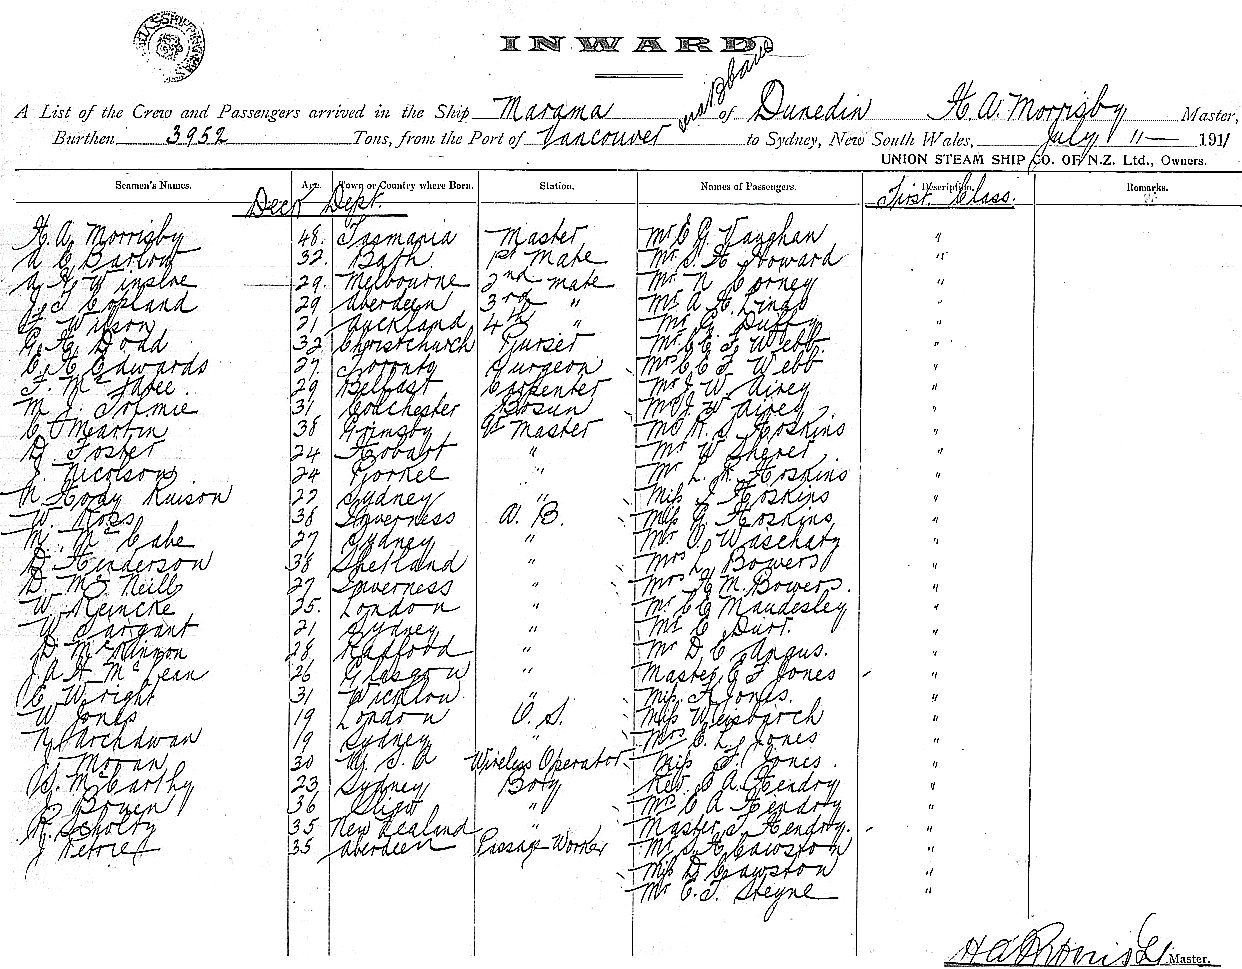 INWARD
via Brisbane
A List of the Crew and Passengers arrived in the Ship Marama of Dunedin H. A. Morrisby Master,
Burthen 3952 Tons, from the Port of Vancouver to Sydney, New South Wales, July 11 1911
UNION STEAM SHIP CO. OF N.Z. Ltd., Owners.
Seamen's Names. Age. Town or Country where Born. Station. Names of Passengers. Description. Remarks.
Deck Dept. First Class.
H. A. Morrisby 48. Tasmania Master Mr E G Vaughan "
A C Barlow 32. Bath 1st Mate Mr S. H Howard "
A H Winsloe 29. Melbourne 2nd mate Mr N Corney "
J. T Copland 29 Aberdeen 3rd " Mr A H Lingo "
Wilson 21 Auckland 4th " Mr G. Duffy "
G. H. Dodd 32 Christchurch Purser Mr C E F Webb "
C. H Edwards 27. Toronto Surgeon Mrs C E F Webb "
F. Mc Fatee. 29 Belfast Carpenter Mr J W Airey "
M J. Tolmie 31 Colchester Bosun J W Airey "
C Martin 38 Grimsby Qr Master R. S. Hoskins "
D. Foster 24 Hobart " Mr W Sherer "
J. Nicolson 24 " Mr L. R Hoskins "
Sydney " Miss J Hoskins "
W. Ross 38 Inverness A. B. Miss G Hoskins "
M. Mc Cabe 27 Sydney " Mr O "
D Henderson 38 Shetland " Mrs L Bowers "
D. Mc Neill 27 Inverness " Mrs H M. Bowers. "
W Reincke 25. London " Mr C E Maudesley "
W Sargant 21 Sydney " Mr C Durt. "
D. McKinnon 28 Rafford " Mr D C Angus. "
J. A. H McLean 26 Glasgow " Master E F Jones "
C Wright 31 Wicklow " Miss F Jones. "
W Jones 19 London O. S. Miss Weisbirch "
19 Sydney " Mrs E. L. Jones "
J. Moran 30 Wireless Operator Miss F. Jones. "
McCarthy 23 Sydney Boty Rev. E A. Hendry "
J Bowen 36 Sligo " Mrs E A Hendry "
R. Scholty 35 New Zealand " Master S. Hendry. "
J Petrie 35 Aberdeen Passage Worker S. H Cawston "
Miss D Cawston "
Mr C. T. Steyne "
Master.